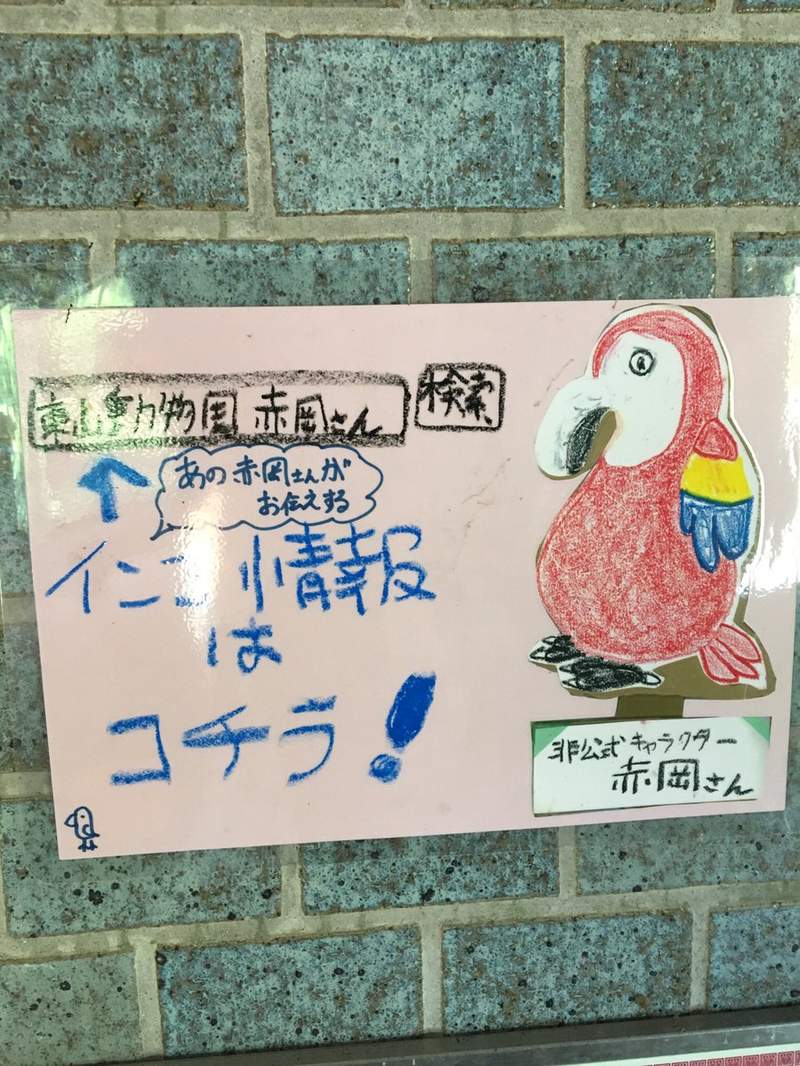 東山動物園 赤岡さん 検索
あの赤岡さんが
お伝えする
インコ情報
は
コチラ!
非公式キャラクター
赤岡さん